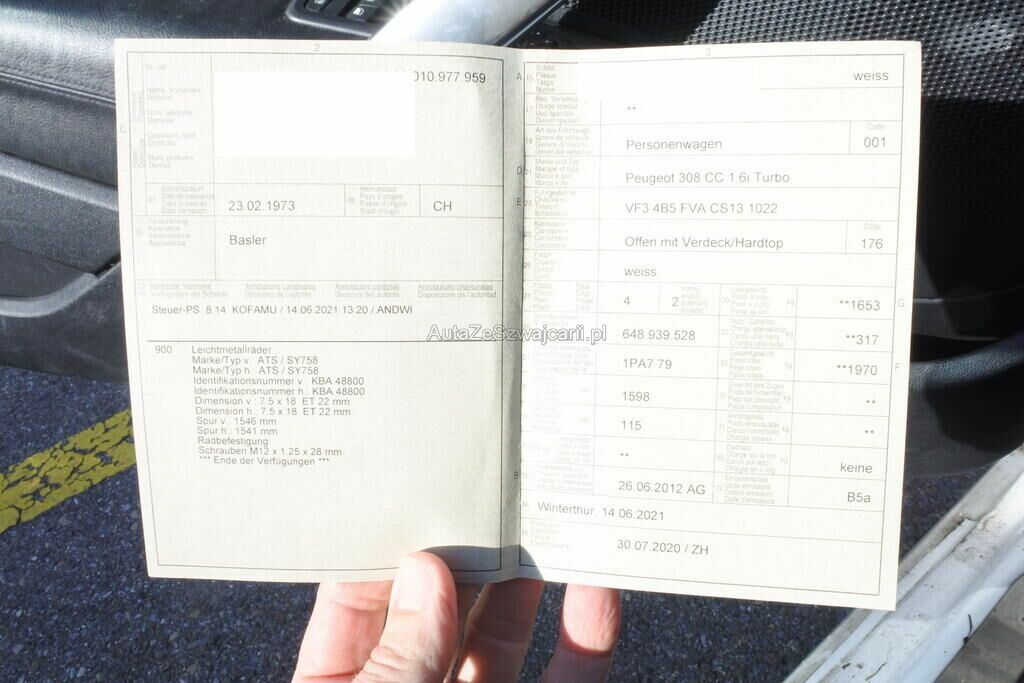 2
01-06
010.977.959
Name, Vornamen
Wohnort
Nom, prénoms
Domicile
Cognome, nomi
Domicilio
Num, prenums
Domicil
C
07
Geburtsdatum
Date de naissance
Data di nascita
Data da nasch.
23.02.1973
08
Heimatstaat
Pays d'origine
Paese d'origine
Stadi d'origin
CH
09
Versicherung
Assurance
Assicurazione
Assicuranza
Basler
13
14
Kantonale Vermerke
Verfügungen der Behörde
Annotations cantonales
Décisions de l'autorité
Annotazioni cantonali
Decisioni dell'autorità
Annotaziuns chantunalas
Disposiziuns da l'autoritad
Steuer-PS 8.14 KOFAMU / 14.06.2021 13:20 / ANDWI
AutaZeSzwajcarii.pl
900 Leichtmetallräder
Marke/Typ v.: ATS / SY758
Marke/Typ h.: ATS / SY758
Identifikationsnummer v.: KBA 48800
Identifikationsnummer h.: KBA 48800
Dimension v.: 7.5 x 18 ET 22 mm
Dimension h.: 7.5 x 18 ET 22 mm
Spur v.: 1546 mm
Spur h.: 1541 mm
Radbefestigung:
Schrauben M12 x 1.25 x 28 mm
*** Ende der Verfügungen ***
3
A
15
Schild
Plaque
Targa
Numer
weiss
17
Bes. Verwendung
Usage spécial
Uso speciale
Diever spezial
**
19
Art des Fahrzeugs
Genre de véhicule
Genere di veicolo
Gener dal vehichel
Personenwagen
Code
001
D
21
Marke und Typ
Marque et type
Marca e tipo
Marca e tip
Peugeot 308 CC 1.6i Turbo
E
23
VF3 4B5 FVA CS13 1022
25
Karosserie
Carrosserie
Carrozzeria
Carossaria
Offen mit Verdeck/Hardtop
Code
176
26
Farbe
Couleur
Colore
weiss
27
Plätze Total
Places Total
Posti Totale
4
2
30
Leergewicht
Poids à vide
Peso a vuoto
kg
**1653
G
648 939 528
32
**317
1PA7 79
33
Gesamtgewicht
Poids total
Peso totale
Paisa totala
kg
**1970
F
1598
35
Gewicht des Zuges
Poids de l'ensemble
kg
**
115
31
Anhängelast
kg
**
**
55
Dachlast
kg
keine
B
26.06.2012 AG
72
Emissionscode
Code émissions
Codice emissioni
B5a
38
Winterthur, 14.06.2021
39
30.07.2020 / ZH